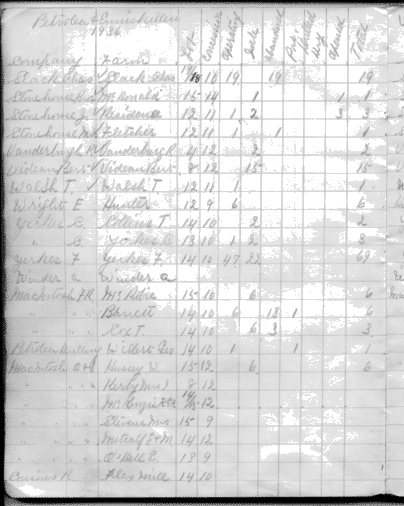 Petrolea & Enniskillen
1936
Company Farm Lot Concession operating Idle abandoned Total
Slack Chas Slack Chas 18 10 19 19 19
Stonehouse McDonald 15 14 1 1 1
Stonehouse J. Residence 12 11 1 2 3 3
Stonehouse Fletcher 12 11 1 1 1
Vanderburgh R Vanderburgh R 4 12 2 2
Videan Bros Videan Bros 8 12 15 15
Walsh T. Walsh T 12 11 1 1
Wright E Hunter 12 9 6 6
Yerkes C. Collins T 14 10 2 2
" C Yerkes C 13 10 1 2 3
Yerkes F Yerkes F 14 10 47 22 69
Winder a Winder a
Mackintosh J.R. McRobie 15 10 6 6
" " Barrett 14 10 6 13 1 6
" " Cox T. 14 10 6 3 3
Petrolea Willert Geo 14 10 1 1 1
Mackintosh Henry W. 15 12 6 6
" " " Kerby Mrs J 8 12
" " 12
" " Stevens Mrs 15 9
" " Metcalf 14 12
" " O'Neil C. 18 9
Cousins R. Flax Mill 14 10